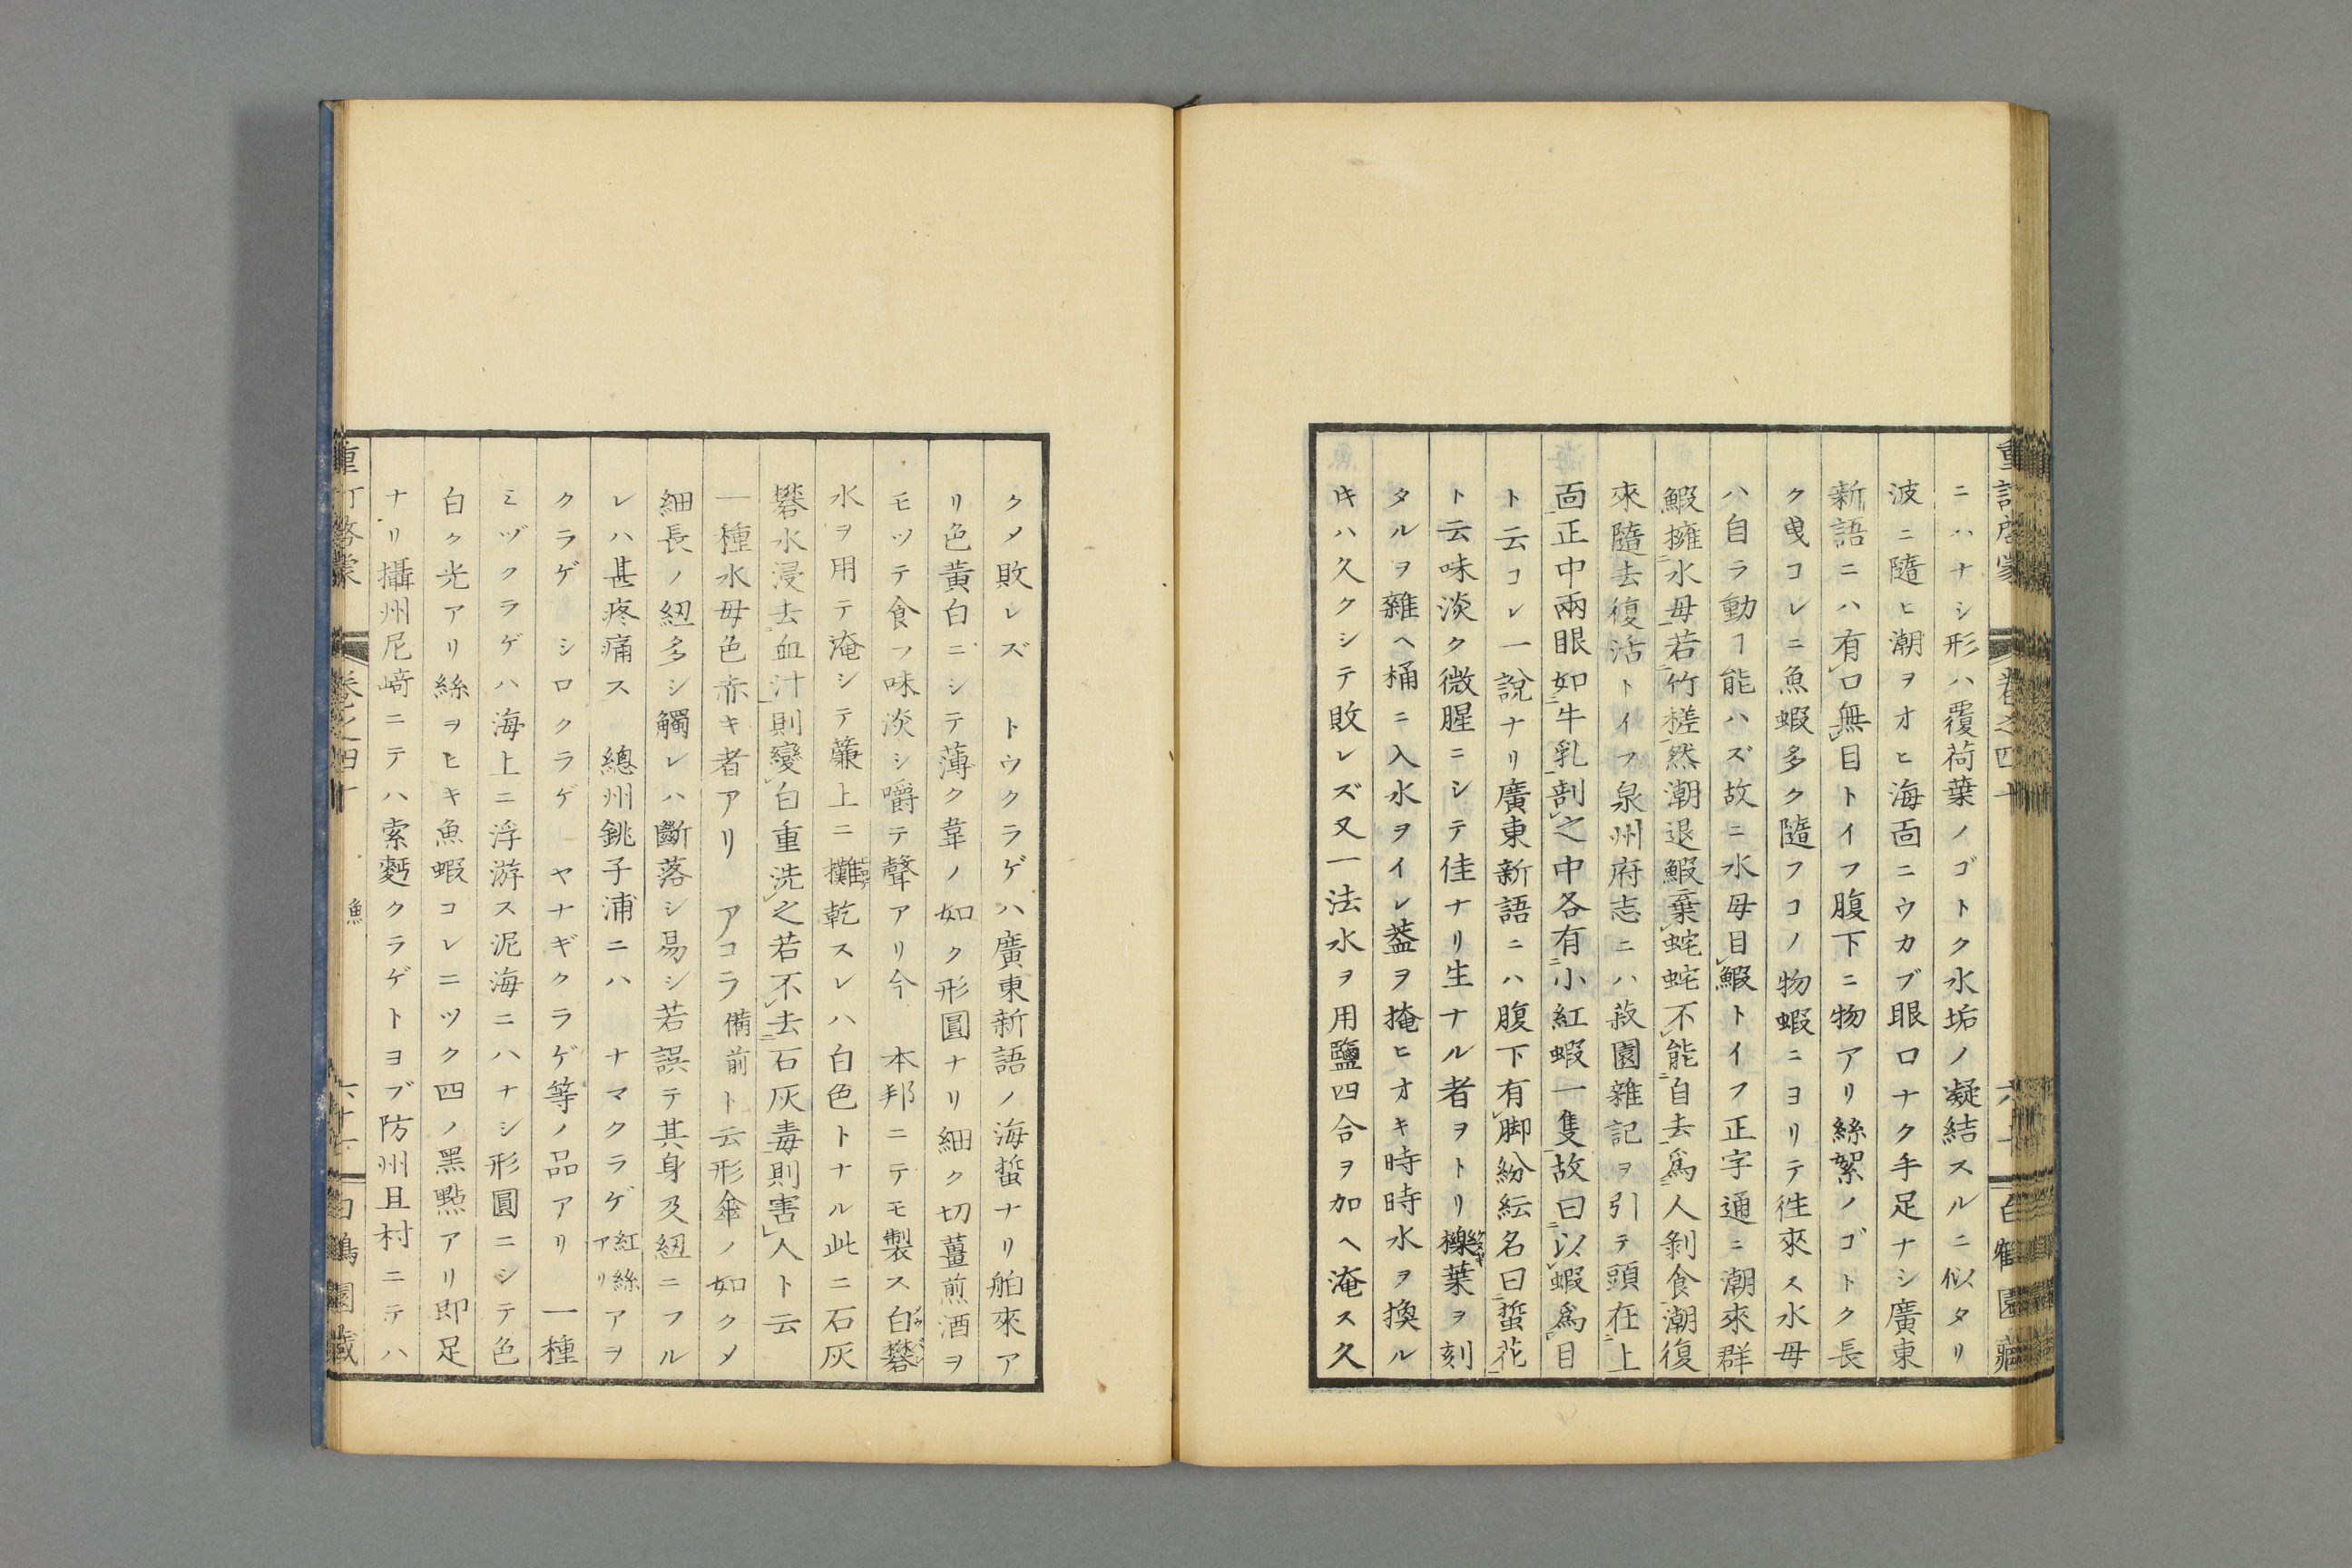 ニハナシ形ハ覆荷葉ノゴトク水垢ノ凝結スルニ似タリ
波ニ隨ヒ潮ヲオヒ海面ニウカブ眼口ナク手足ナシ廣東
新語ニハ有口無目トイフ腹下ニ物アリ絲絮ノゴトク長
ク曳コレニ魚蝦多ク隨フコノ物蝦ニヨリテ徃來ス水母
ハ自ラ動ヿ能ハズ故ニ水母目鰕トイフ正字通ニ潮來群
鰕擁水母若竹槎然潮退鰕棄䖳䖳不能自去爲人剝食潮復
來隨去復活トイフ泉州府志ニハ菽園雜記ヲ引テ頭在上
面正中兩眼如牛乳剖之中各有小紅蝦一隻故曰以蝦爲目
ト云コレ一說ナリ廣東新語ニハ腹下有脚紛紜名曰蜇花
ト云味淡ク微腥ニシテ佳ナリ生ナル者ヲトリ櫟葉ヲ刻
タルヲ雜ヘ桶ニ入水ヲイレ葢ヲ掩ヒオキ時時水ヲ換ル
キハ久クシテ敗レズ又一法水ヲ用鹽四合ヲ加ヘ淹ス久
クメ敗レズ トウクラゲハ廣東新語ノ海蜇ナリ舶來ア
リ色黄白ニシテ薄ク韋ノ如ク形圓ナリ細ク切薑煎酒ヲ
モツテ食フ味淡シ嚼テ聲アリ今 本邦ニテモ製ス白礬
水ヲ用テ淹シテ簾上ニ攤乾スレハ白色トナル此ニ石灰
礬水浸去血汁則變白重洗之若不去石灰毒則害人ト云
一種水母色赤キ者アリ アコラ備前ト云形傘ノ如クメ
細長ノ紐多シ觸レハ斷落シ易シ若誤テ其身及紐ニフル
レハ甚疼痛ス 總州銚子浦ニハ ナマクラゲ紅絲アリアヲ
クラゲ シロクラゲ ヤナギクラゲ等ノ品アリ 一種
ミヅクラゲハ海上ニ浮游ス泥海ニハナシ形圓ニシテ色
白ク光アリ絲ヲヒキ魚蝦コレニツク四ノ黑㸃アリ即足
ナリ攝州尼﨑ニテハ索麪クラゲトヨブ防州且村ニテハ